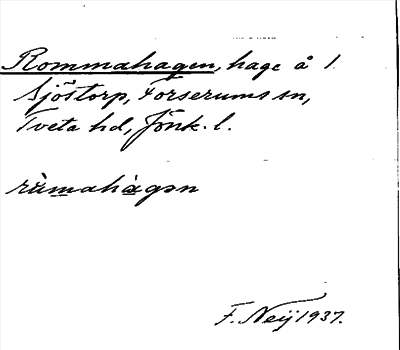 Rommahagen, hage å 1
Sjöstorp, Forserums sn,
Tveta hd, Jönk. l.
ràmahàgən
F. Neij 1937.